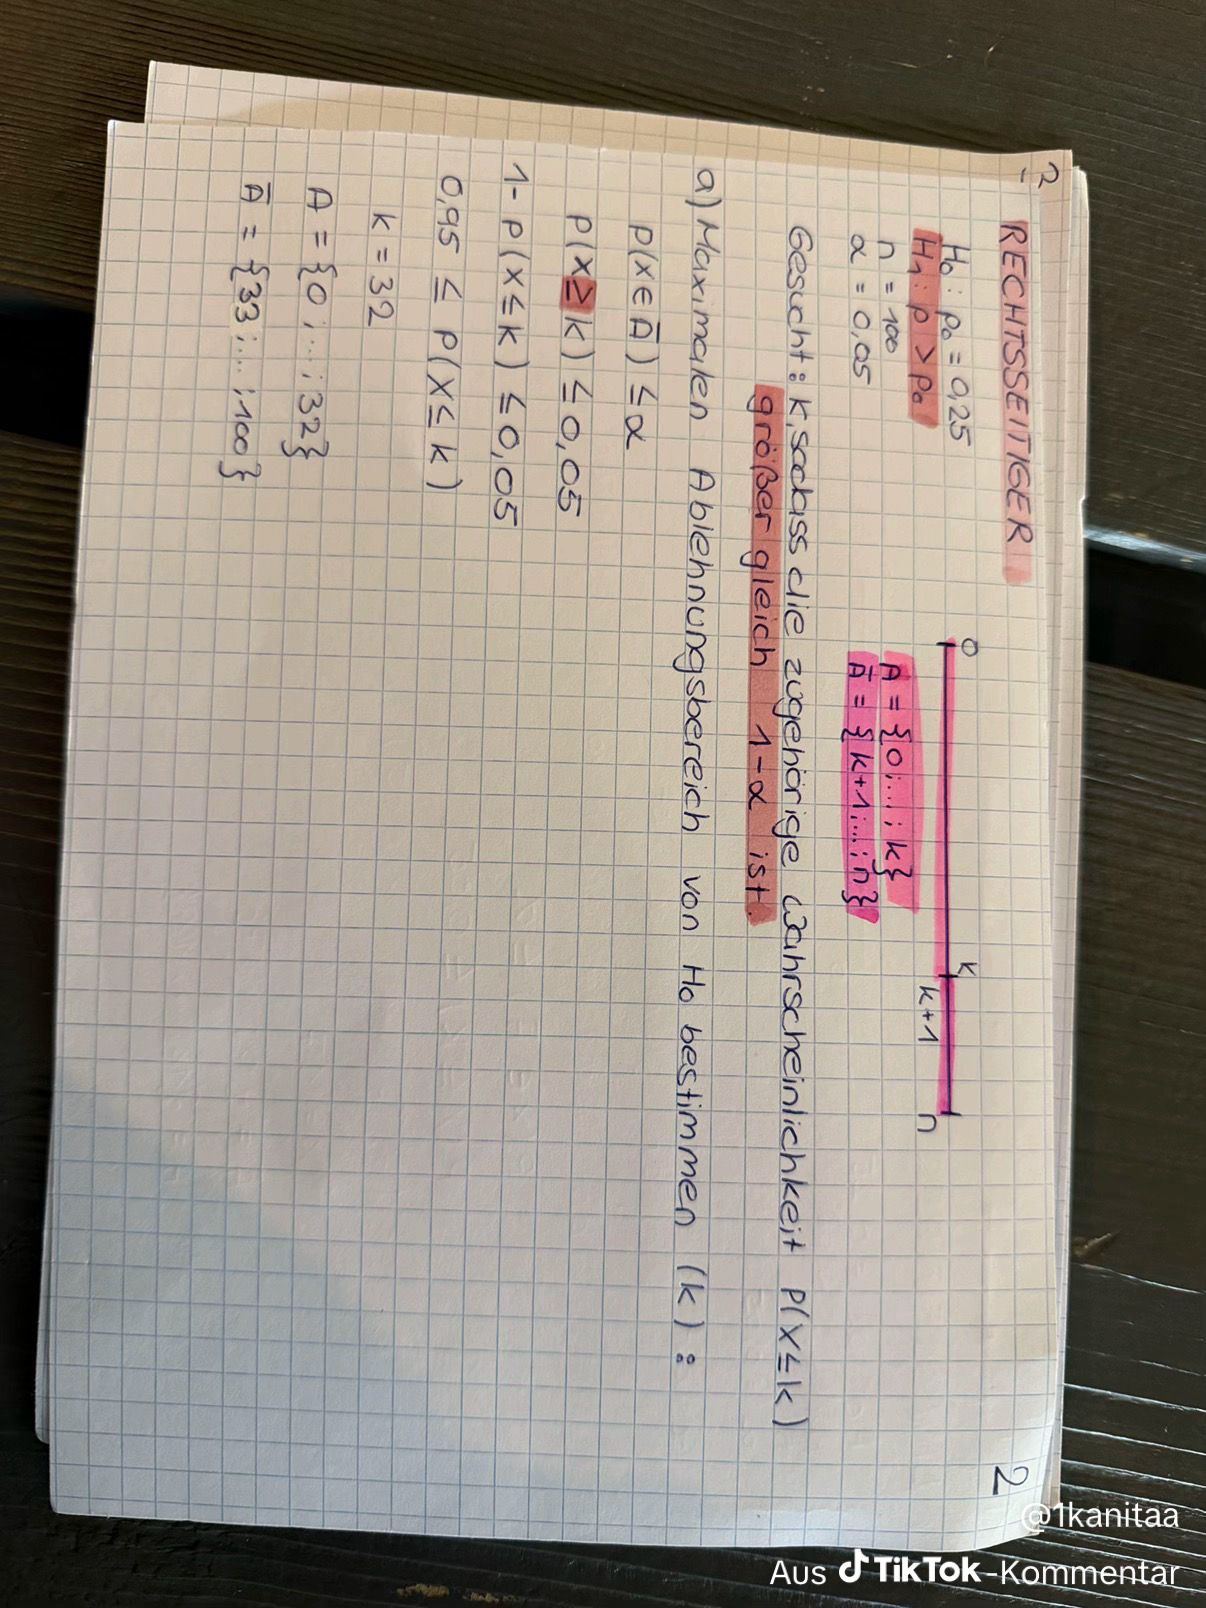 2
RECHTSSEITIGER
H₀ : p₀ = 0,25
H₁ : p > p₀
n = 100
α = 0,05
0
k
k+1
n
A = {0;...;k}
Ā = {k+1;...;n}
Gesucht: k, sodass die zugehörige Wahrscheinlichkeit P(X≤k)
größer gleich 1-α ist.
a) Maximalen Ablehnungsbereich von H₀ bestimmen (k):
P(X∈Ā) ≤ α
P(X≥k) ≤ 0,05
1- P(X≤k) ≤ 0,05
0,95 ≤ P(X≤k)
k = 32
A = {0;...;32}
Ā = {33;...;100}
@1kanitaa
Aus TikTok-Kommentar